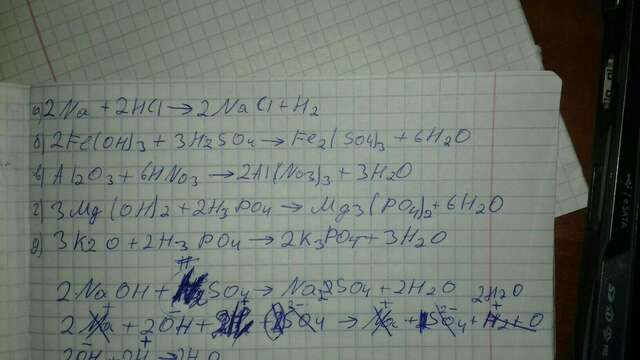 а) 2Na + 2HCl → 2NaCl + H2
б) 2Fe(OH)3 + 3H2SO4 → Fe2(SO4)3 + 6H2O
в) Al2O3 + 6HNO3 → 2Al(NO3)3 + 3H2O
г) 3Mg(OH)2 + 2H3PO4 → Mg3(PO4)2 + 6H2O
д) 3K2O + 2H3PO4 → 2K3PO4 + 3H2O
2NaOH + SO4 → Na2SO4 + 2H2O
2H2O
2Na + 2OH + SO4 → Na + SO4 + H2O
2OH + 2H → 2H2O